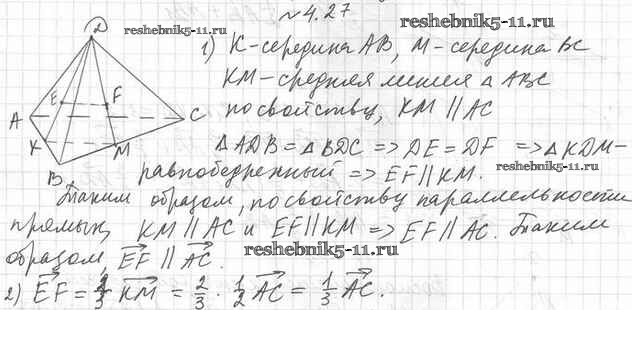 № 4.27
reshebnik5-11.ru
reshebnik5-11.ru
D
E
F
A
C
K
M
B
1) K-середина AB, M-середина BC
KM-средняя линия △ ABC
по свойству, KM || AC
△ADB = △BDC => DE = DF => △KDM-
reshebnik5-11.ru
равнобедренный => EF || KM.
Таким образом, по свойству параллельности
прямых, KM || AC и EF || KM => EF || AC. Таким
образом, EF || AC.
reshebnik5-11.ru
2) EF = 2/3 KM = 2/3 · 1/2 AC = 1/3 AC.